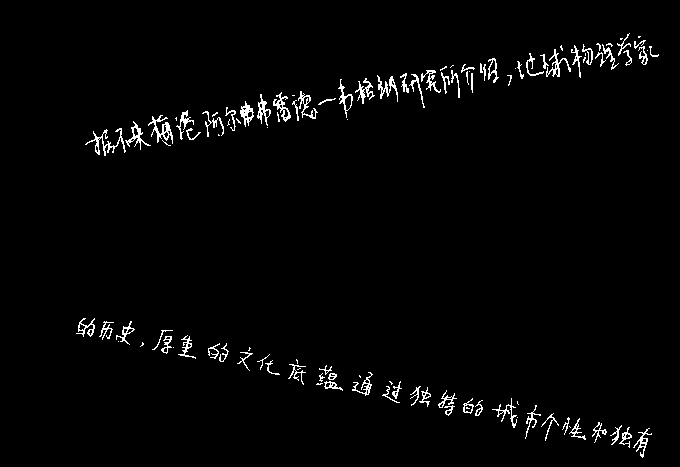 据不来梅港阿尔弗雷德一韦格纳研究所介绍,地球物理学家
的历史,厚重的文化底蕴通过独特的城市个性和独有